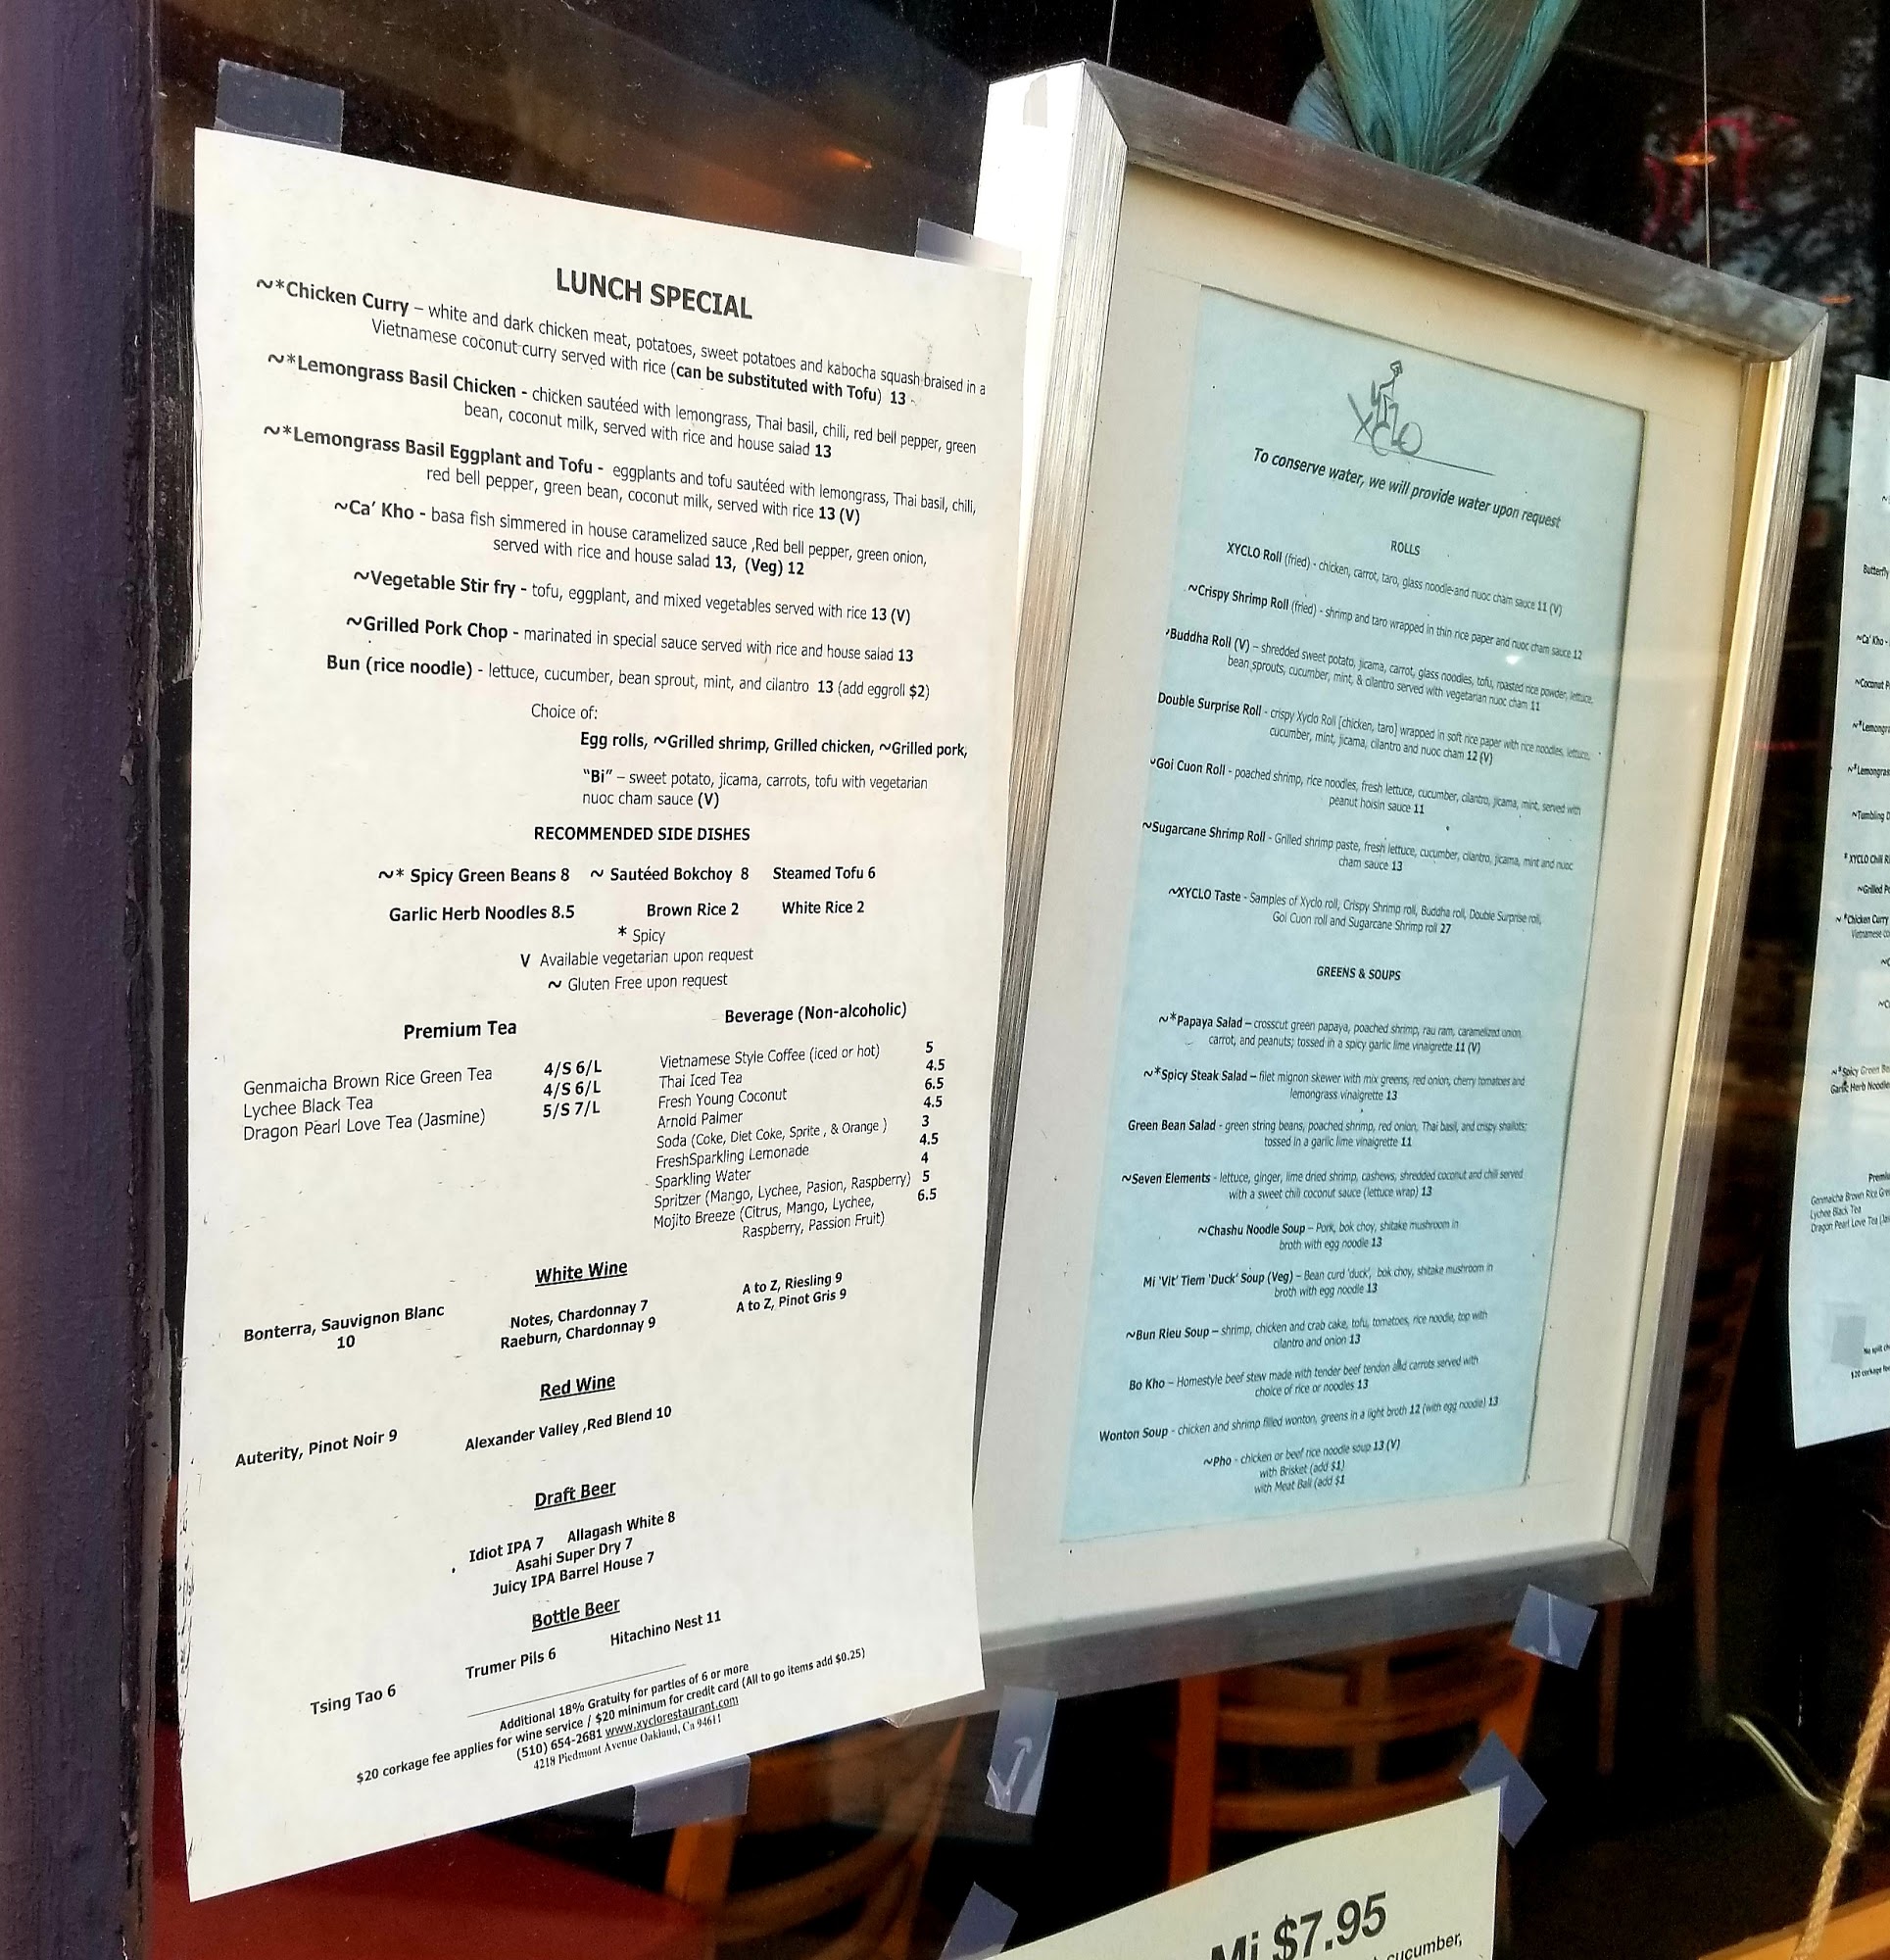 LUNCH SPECIAL
~*Chicken Curry – white and dark chicken meat, potatoes, sweet potatoes and kabocha squash braised in a
Vietnamese coconut curry served with rice (can be substituted with Tofu) 13
~*Lemongrass Basil Chicken - chicken sautéed with lemongrass, Thai basil, chili, red bell pepper, green
bean, coconut milk, served with rice and house salad 13
~*Lemongrass Basil Eggplant and Tofu - eggplants and tofu sautéed with lemongrass, Thai basil, chili,
red bell pepper, green bean, coconut milk, served with rice 13 (V)
~Ca' Kho - basa fish simmered in house caramelized sauce ,Red bell pepper, green onion,
served with rice and house salad 13, (Veg) 12
~Vegetable Stir fry - tofu, eggplant, and mixed vegetables served with rice 13 (V)
~Grilled Pork Chop - marinated in special sauce served with rice and house salad 13
Bun (rice noodle) - lettuce, cucumber, bean sprout, mint, and cilantro 13 (add eggroll $2)
Choice of:
Egg rolls, ~Grilled shrimp, Grilled chicken, ~Grilled pork,
“Bi” – sweet potato, jicama, carrots, tofu with vegetarian
nuoc cham sauce (V)
RECOMMENDED SIDE DISHES
~* Spicy Green Beans 8 ~ Sautéed Bokchoy 8 Steamed Tofu 6
Garlic Herb Noodles 8.5 Brown Rice 2 White Rice 2
* Spicy
V Available vegetarian upon request
~ Gluten Free upon request
Premium Tea
Genmaicha Brown Rice Green Tea 4/S 6/L
Lychee Black Tea 4/S 6/L
Dragon Pearl Love Tea (Jasmine) 5/S 7/L
Beverage (Non-alcoholic)
Vietnamese Style Coffee (iced or hot) 5
Thai Iced Tea 4.5
Fresh Young Coconut 6.5
Arnold Palmer 4.5
Soda (Coke, Diet Coke, Sprite , & Orange ) 3
FreshSparkling Lemonade 4.5
Sparkling Water 4
Spritzer (Mango, Lychee, Pasion, Raspberry) 5
Mojito Breeze (Citrus, Mango, Lychee, 6.5
Raspberry, Passion Fruit)
White Wine
Bonterra, Sauvignon Blanc
10
Notes, Chardonnay 7
Raeburn, Chardonnay 9
A to Z, Riesling 9
A to Z, Pinot Gris 9
Red Wine
Auterity, Pinot Noir 9 Alexander Valley ,Red Blend 10
Draft Beer
Idiot IPA 7 Allagash White 8
Asahi Super Dry 7
Juicy IPA Barrel House 7
Bottle Beer
Tsing Tao 6 Trumer Pils 6 Hitachino Nest 11
Additional 18% Gratuity for parties of 6 or more
$20 corkage fee applies for wine service / $20 minimum for credit card (All to go items add $0.25)
(510) 654-2681 www.xyclorestaurant.com
4218 Piedmont Avenue Oakland, Ca 94611
To conserve water, we will provide water upon request
ROLLS
XYCLO Roll (fried) - chicken, carrot, taro, glass noodle and nuoc cham sauce 11 (V)
~Crispy Shrimp Roll (fried) - shrimp and taro wrapped in thin rice paper and nuoc cham sauce 12
~Buddha Roll (V) – shredded sweet potato, jicama, carrot, glass noodles, tofu, roasted rice powder, lettuce,
bean sprouts, cucumber, mint, & cilantro served with vegetarian nuoc cham 11
Double Surprise Roll - crispy Xyclo Roll [chicken, taro] wrapped in soft rice paper with rice noodles, lettuce,
cucumber, mint, jicama, cilantro and nuoc cham 12 (V)
~Goi Cuon Roll - poached shrimp, rice noodles, fresh lettuce, cucumber, cilantro, jicama, mint, served with
peanut hoisin sauce 11
~Sugarcane Shrimp Roll - Grilled shrimp paste, fresh lettuce, cucumber, cilantro, jicama, mint and nuoc
cham sauce 13
~XYCLO Taste - Samples of Xyclo roll, Crispy Shrimp roll, Buddha roll, Double Surprise roll,
Goi Cuon roll and Sugarcane Shrimp roll 27
GREENS & SOUPS
~*Papaya Salad – crosscut green papaya, poached shrimp, rau ram, caramelized onion,
carrot, and peanuts; tossed in a spicy garlic lime vinaigrette 11 (V)
~*Spicy Steak Salad – filet mignon skewer with mix greens, red onion, cherry tomatoes and
lemongrass vinaigrette 13
Green Bean Salad - green string beans, poached shrimp, red onion, Thai basil, and crispy shallots;
tossed in a garlic lime vinaigrette 11
~Seven Elements - lettuce, ginger, lime dried shrimp, cashews, shredded coconut and chili served
with a sweet chili coconut sauce (lettuce wrap) 13
~Chashu Noodle Soup – Pork, bok choy, shitake mushroom in
broth with egg noodle 13
Mi 'Vit' Tiem 'Duck' Soup (Veg) – Bean curd 'duck', bok choy, shitake mushroom in
broth with egg noodle 13
~Bun Rieu Soup – shrimp, chicken and crab cake, tofu, tomatoes, rice noodle, top with
cilantro and onion 13
Bo Kho – Homestyle beef stew made with tender beef tendon and carrots served with
choice of rice or noodles 13
Wonton Soup - chicken and shrimp filled wonton, greens in a light broth 12 (with egg noodle) 13
~Pho - chicken or beef rice noodle soup 13 (V)
with Brisket (add $1)
with Meat Ball (add $1
Butterfly
~Ca' Kho -
~Coconut
~Grilled
~*Chicken Curry
~*Spicy Green
Garlic Herb
Genmaicha Brown Rice
Lychee Black Tea
Dragon Pearl Love Tea
Mi $7.95
cucumber,